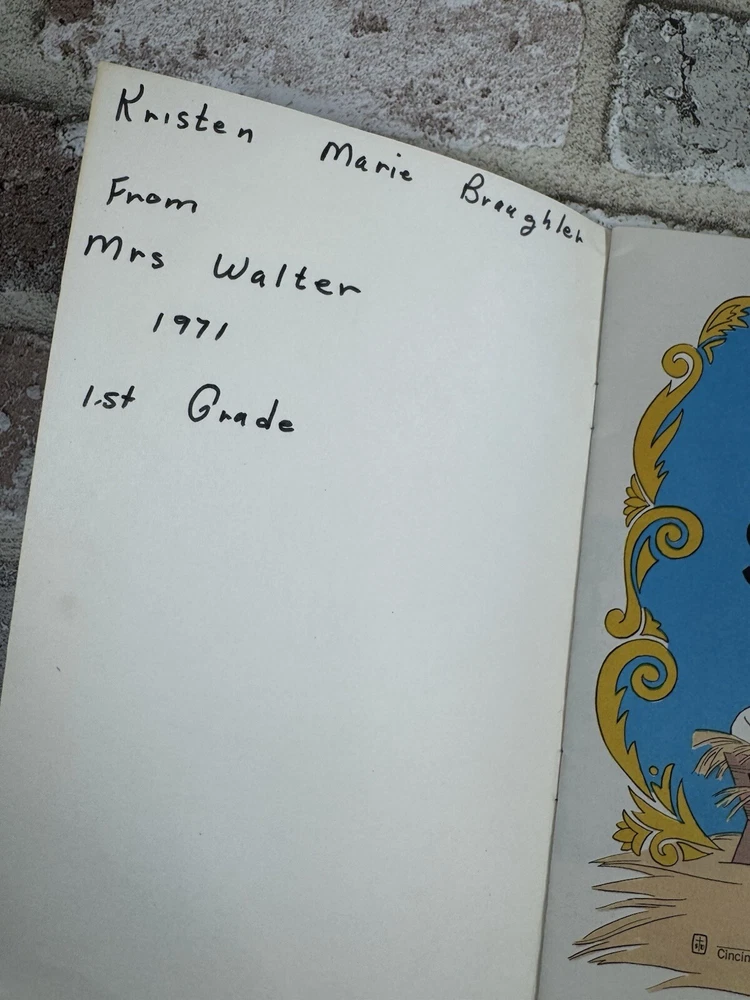 Kristen Marie Braughler
From
Mrs Walter
1971
1st Grade